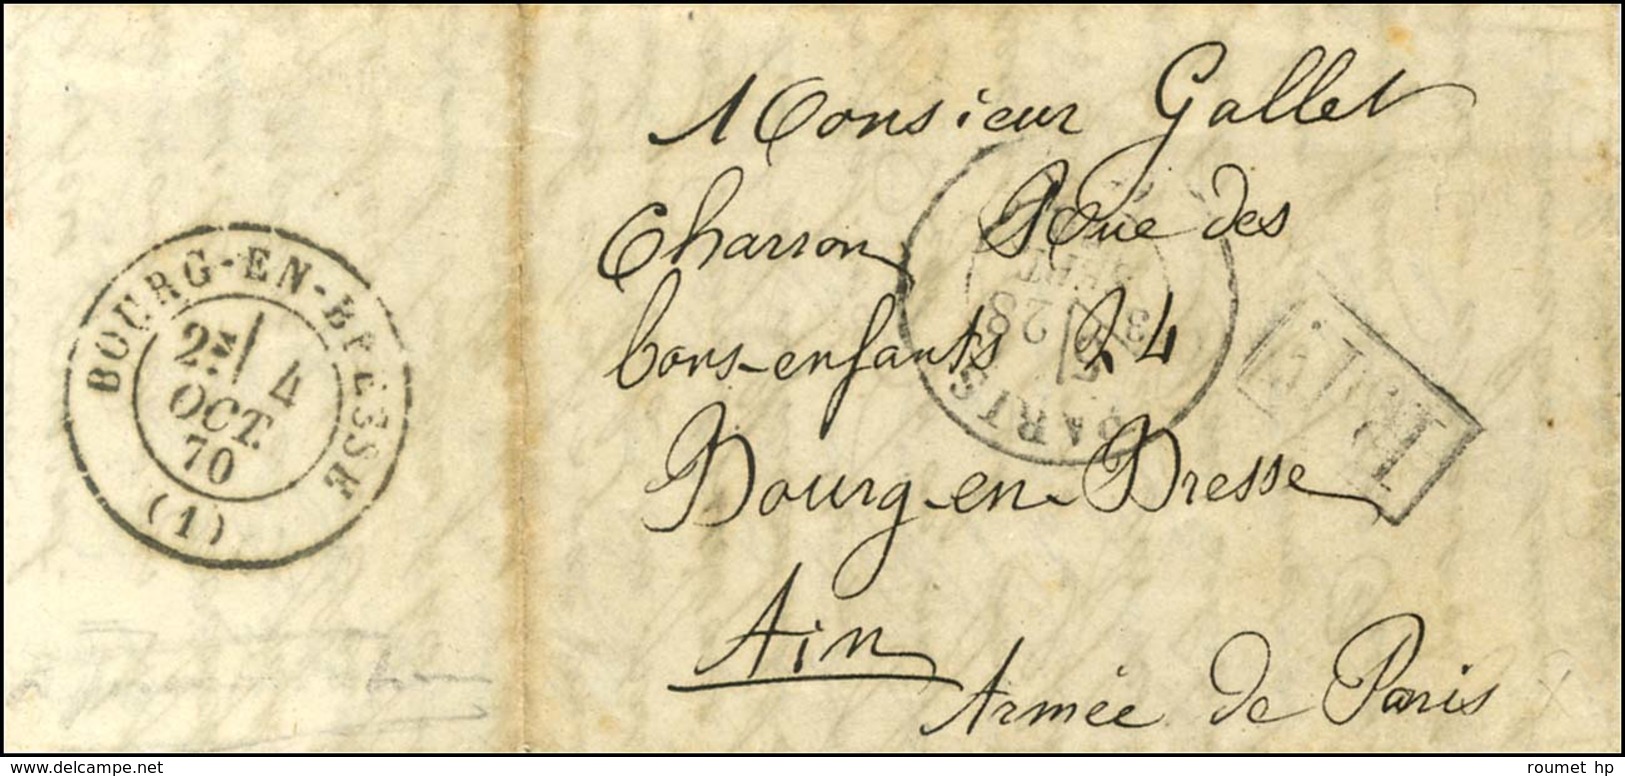 Monsieur Gallet
Charron Rue des
bons-enfants 24
Bourg-en-Bresse
Ain
Armée de Paris
BOURG-EN-BRESSE
2E 4
OCT.
70
(1)
PARIS
28
SEPT
www.delcampe.net
roumet hp